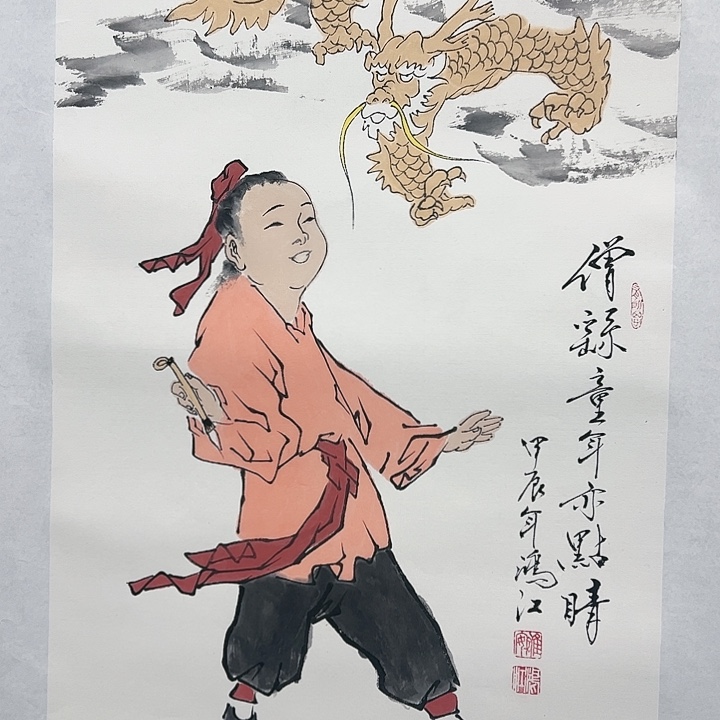 僧繇童年亦點睛
甲辰年鴻江